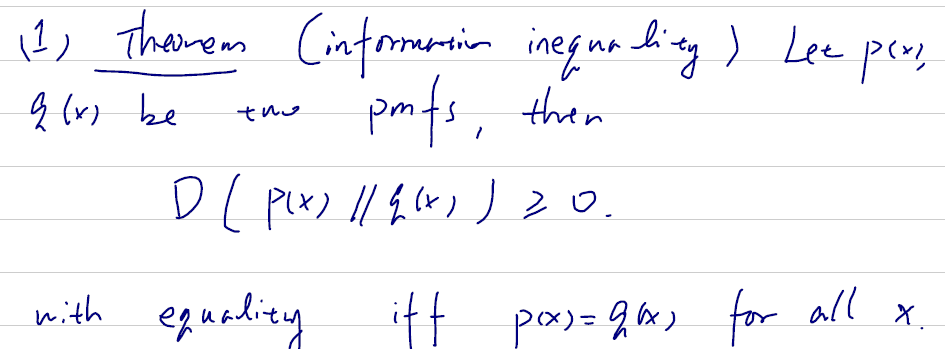 (1) Theorem (information inequality) Let p(x),
q(x) be two pmfs, then
D( p(x) // q(x) ) ≥ 0.
with equality iff p(x) = q(x) for all x.